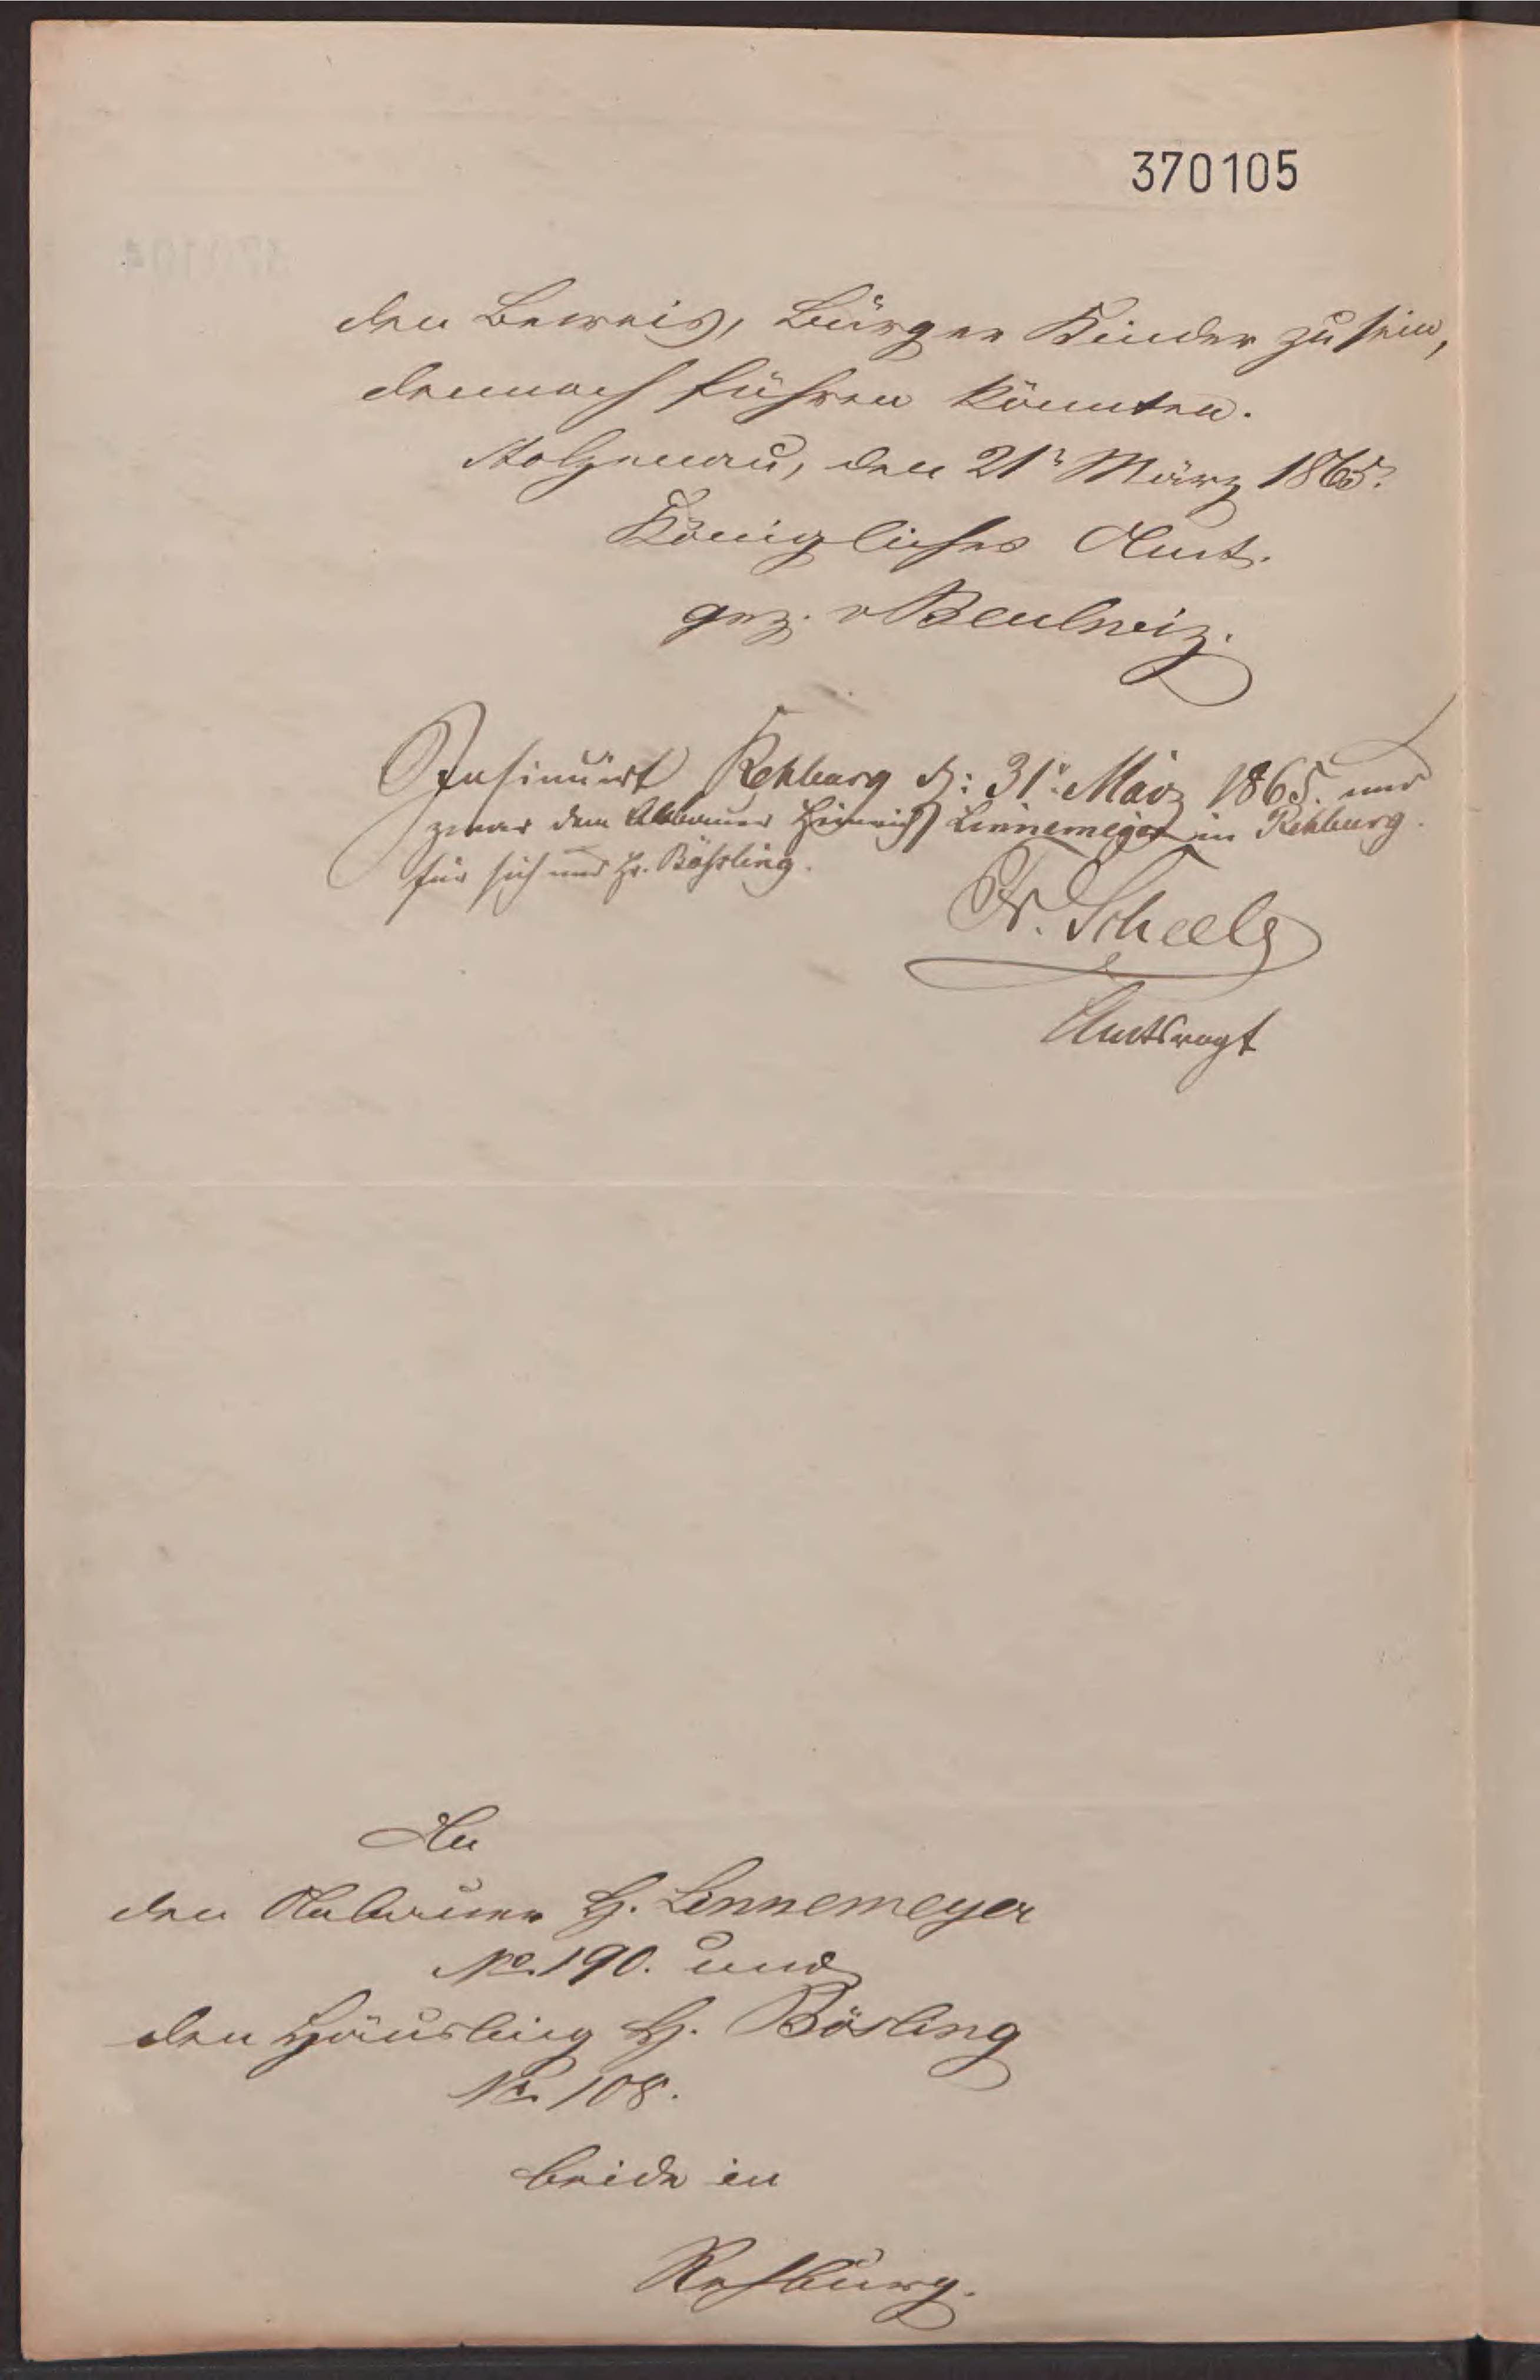 370105
den Beweis, Bürger Kinder zu sein,
dennoch führen könnten.
Stolzenau, den 21n März 1865.
Königliches Amt.
gez. v Beulwiz.
Insinuirt Rehburg d: 31n März 1865. und
zwar dem Anbauer Heinrich Linnemeyer in Rehburg.
für sich und Hr. Bößling.
Fr. Scheele
Amtsvogt
An
den Anbauer H. Linnemeyer
No. 190. und
den Häusling H. Bösling
No. 108.
beide in
Rehburg.